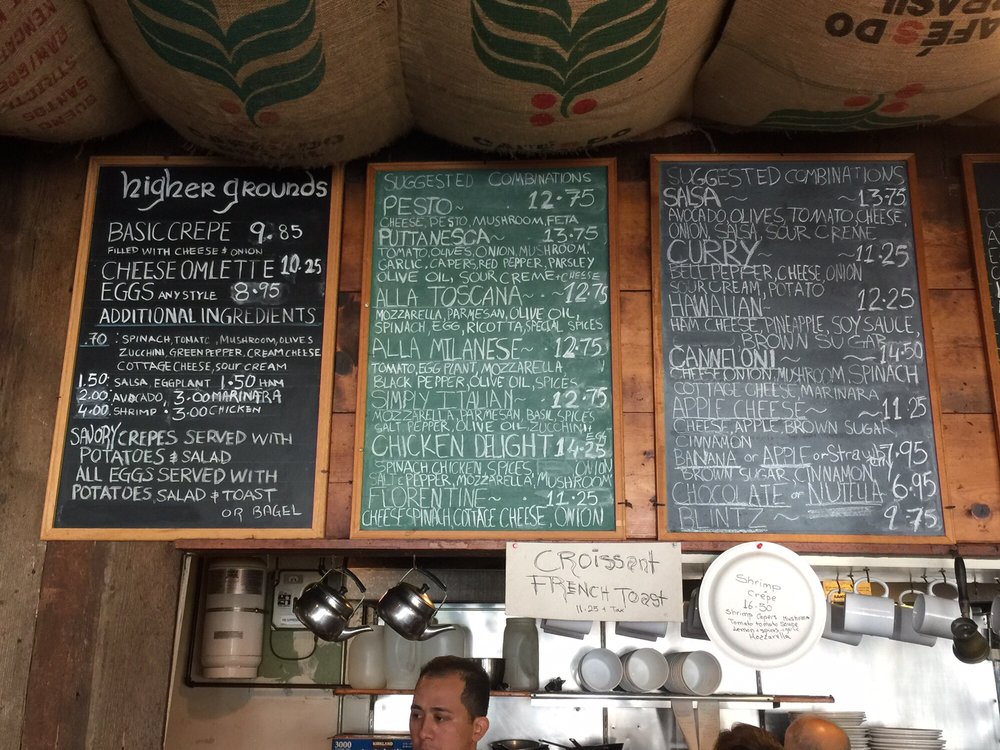 CAFÉS DO
BRASIL
CAFÉS DO
SANTOS
higher grounds
BASIC CREPE 9.85
FILLED WITH CHEESE & ONION
CHEESE OMLETTE 10.25
EGGS ANY STYLE 8.95
ADDITIONAL INGREDIENTS
.70 : SPINACH, TOMATO, MUSHROOM, OLIVES
ZUCCHINI, GREEN PEPPER, CREAM CHEESE
COTTAGE CHEESE, SOUR CREAM
1.50: SALSA, EGGPLANT 1.50 HAM
2.00: AVOCADO, 3.00 MARINARA
4.00: SHRIMP : 3.00 CHICKEN
SAVORY CREPES SERVED WITH
POTATOES & SALAD
ALL EGGS SERVED WITH
POTATOES, SALAD & TOAST
OR BAGEL
SUGGESTED COMBINATIONS
PESTO~ 12.75
CHEESE, PESTO, MUSHROOM, FETA
PUTTANESCA~ 13.75
TOMATO, OLIVES, ONION, MUSHROOM,
GARLIC, CAPERS, RED PEPPER, PARSLEY
OLIVE OIL, SOUR CREME + CHEESE
ALLA TOSCANA~ 12.75
MOZZARELLA, PARMESAN, OLIVE OIL,
SPINACH, EGG, RICOTTA, SPECIAL SPICES
ALLA MILANESE~ 12.75
TOMATO, EGG PLANT, MOZZARELLA,
BLACK PEPPER, OLIVE OIL, SPICES
SIMPLY ITALIAN~ 12.75
MOZZARELLA, PARMESAN, BASIC SPICES
SALT PEPPER, OLIVE OIL, ZUCCHINI, EGG
CHICKEN DELIGHT 14.25
SPINACH CHICKEN, SPICES, ONION
SALT & PEPPER, MOZZARELLA, MUSHROOM
FLORENTINE~ 11.25
CHEESE SPINACH COTTAGE CHEESE, ONION
SUGGESTED COMBINATIONS
SALSA~ 13.75
AVOCADO, OLIVES, TOMATO, CHEESE,
ONION, SALSA, SOUR CREME
CURRY~ 11.25
BELL PEPPER, CHEESE ONION
SOUR CREAM, POTATO
HAWAIIAN~ 12.25
HAM CHEESE, PINEAPPLE, SOY SAUCE,
BROWN SUGAR
CANNELONI~ 14.50
CHEESE ONION, MUSHROOM SPINACH
COTTAGE CHEESE, MARINARA
APPLE CHEESE~ ~11.25
CHEESE, APPLE, BROWN SUGAR
CINNAMON
BANANA or APPLE or Strawberry 7.95
BROWN SUGAR, CINNAMON
CHOCOLATE or NUTELLA 6.95
BLINTZ~ ~ 9.75
CROissant
FRENCH TOAST
11.25 + Tax
Shrimp
Crepe
16.50
Shrimp Capers Mushrooms
Tomato tomato Sauce
Lemon garlic
Mozzarella
3000
KIRKLAND